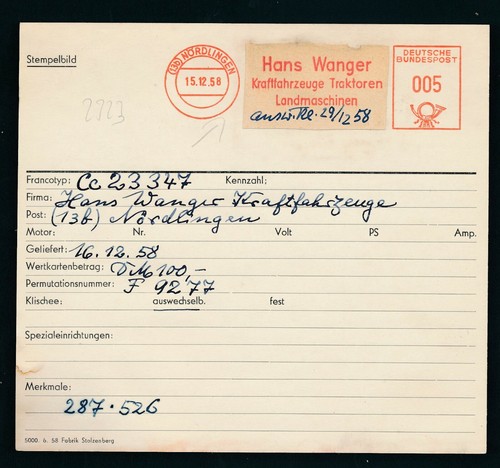 Stempelbild
(13b) NÖRDLINGEN
15.12.58
Hans Wanger
Kraftfahrzeuge Traktoren
Landmaschinen
29/12 58
DEUTSCHE
BUNDESPOST
005
2923
Francotyp: Cc 23 347 Kennzahl:
Firma: Hans Wanger Kraftfahrzeuge
Post: (13b) Nördlingen
Motor: Nr. Volt PS Amp.
Geliefert: 16.12.58
Wertkartenbetrag: DM 100,-
Permutationsnummer: F 9277
Klischee: auswechselb. fest
Spezialeinrichtungen:
Merkmale:
287·526
5000. 6. 58 Fabrik Stolzenberg